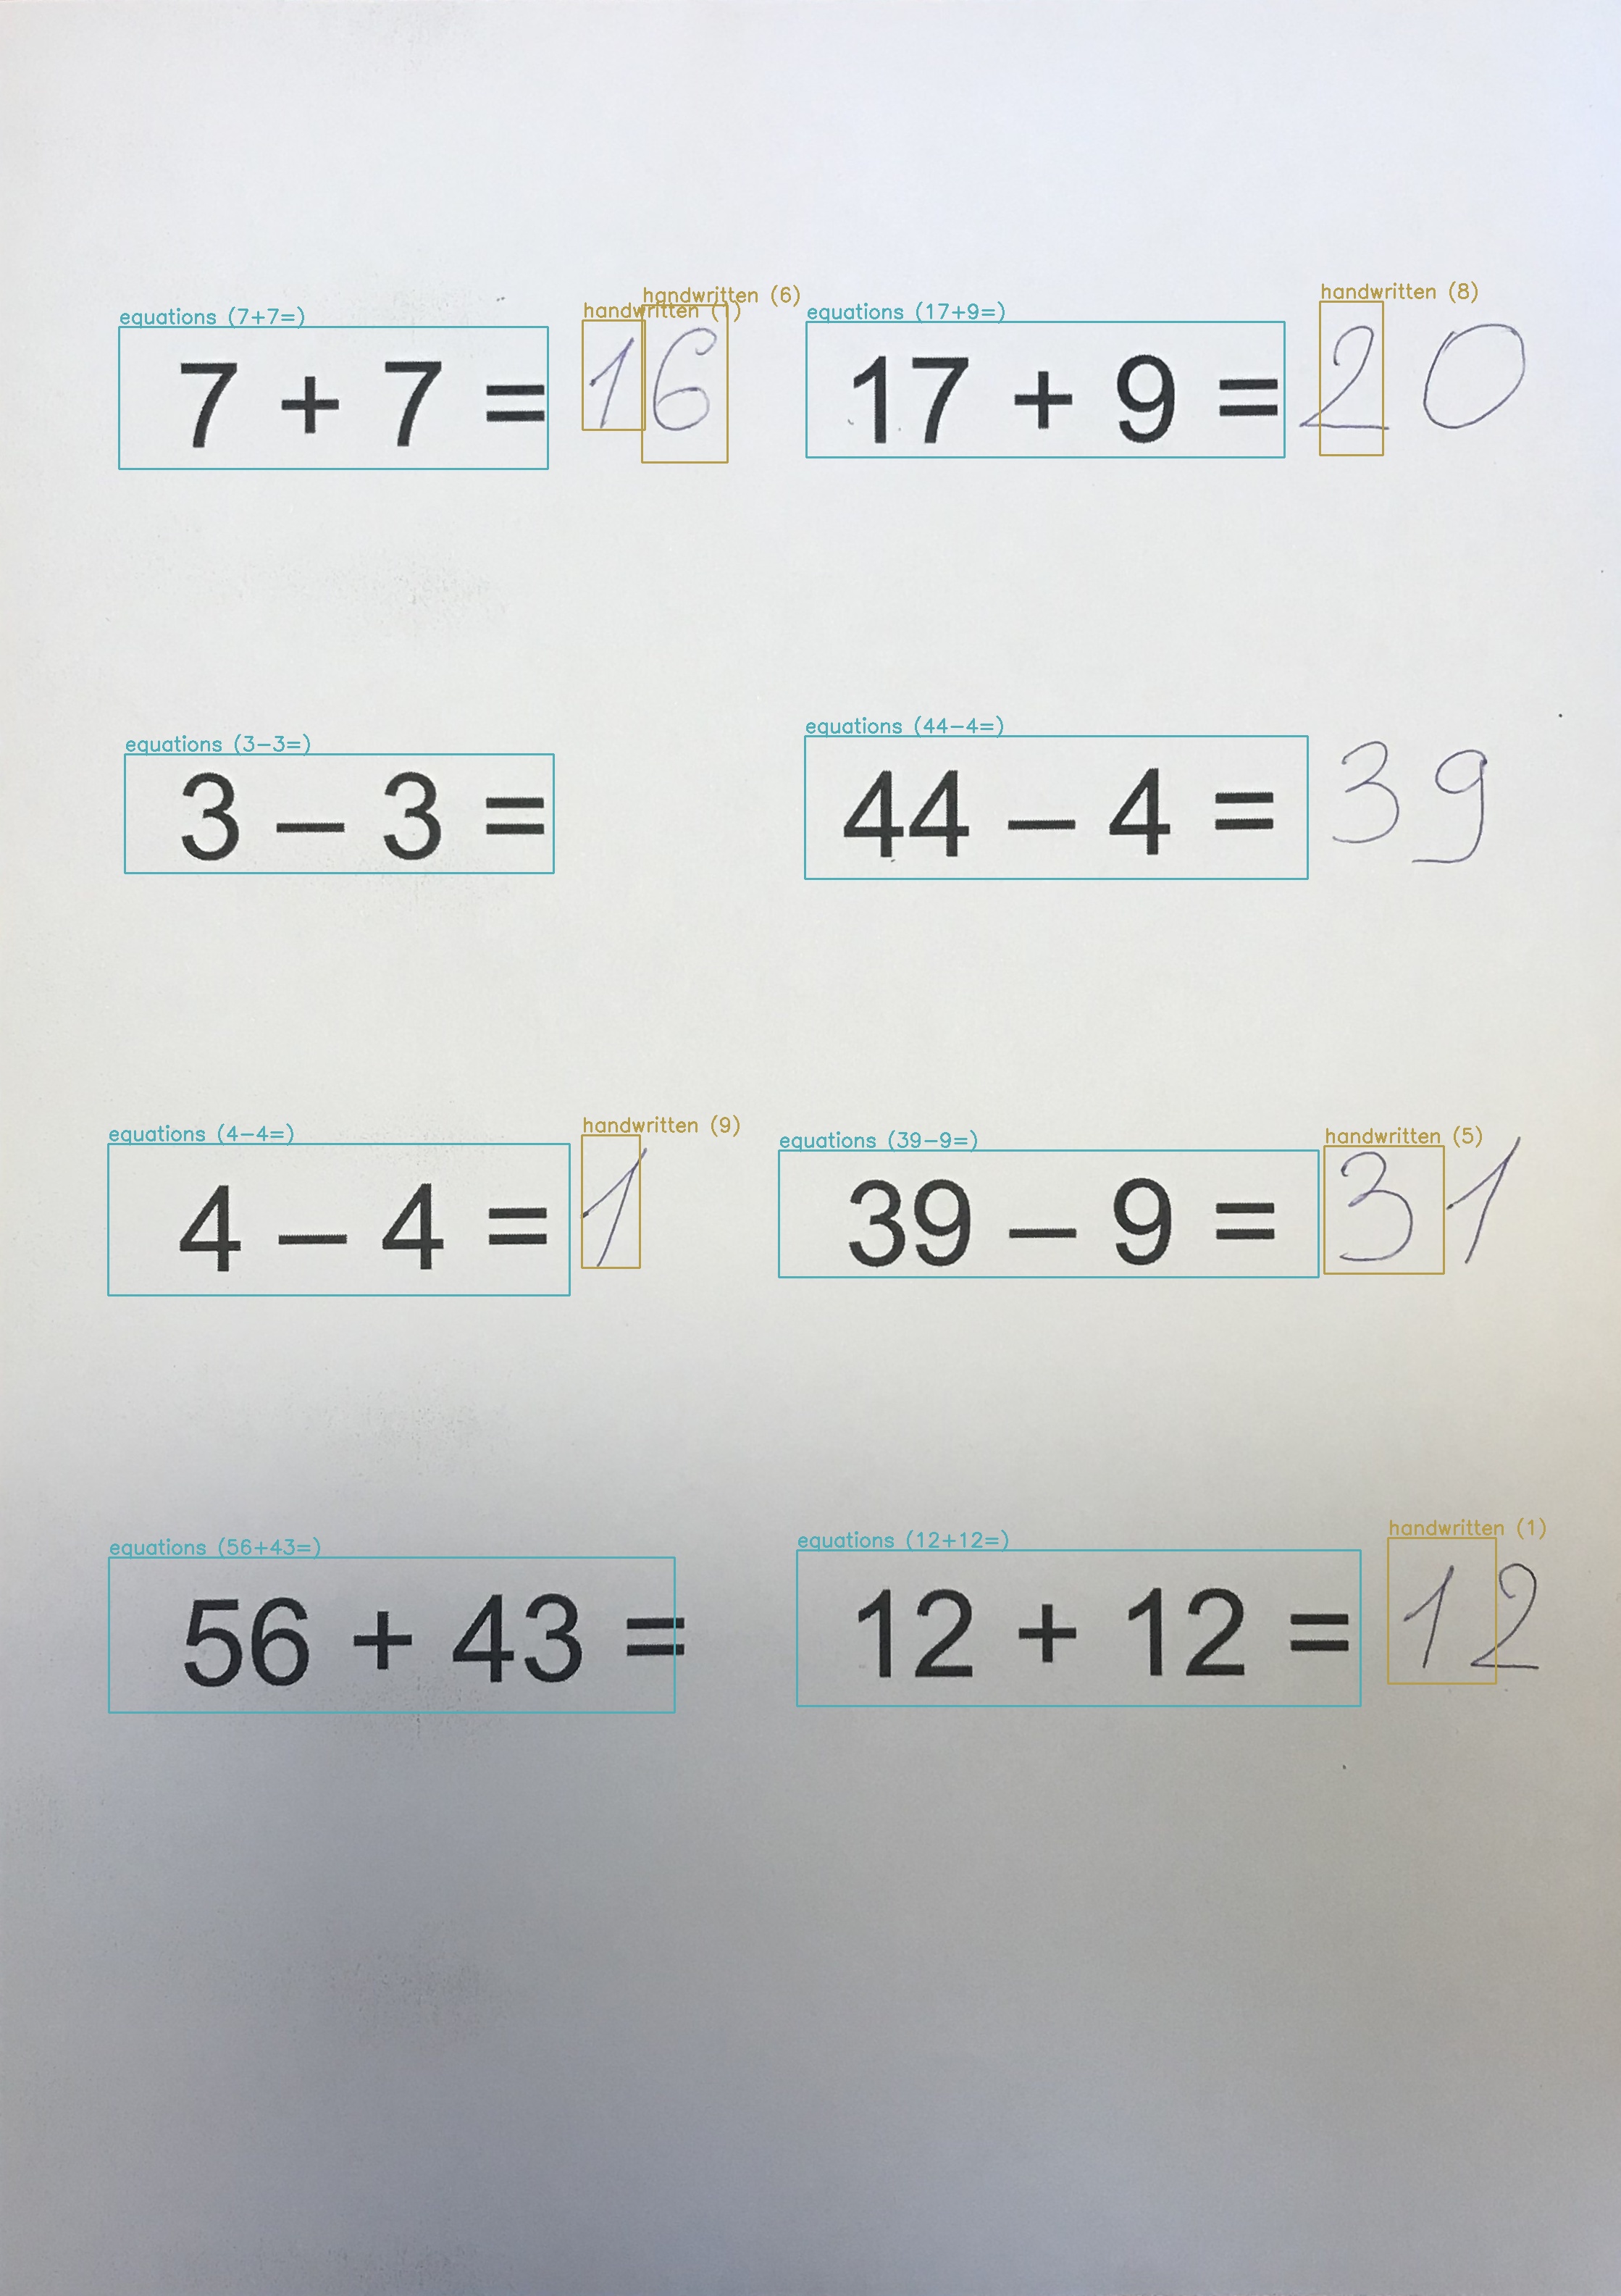 equations (7+7=) handwritten (1) handwritten (6) equations (17+9=) handwritten (8)
7 + 7 = 16 17 + 9 = 20
equations (3-3=) equations (44-4=)
3 – 3 = 44 – 4 = 39
equations (4-4=) handwritten (9) equations (39-9=) handwritten (5)
4 – 4 = 1 39 – 9 = 31
equations (56+43=) equations (12+12=) handwritten (1)
56 + 43 = 12 + 12 = 12